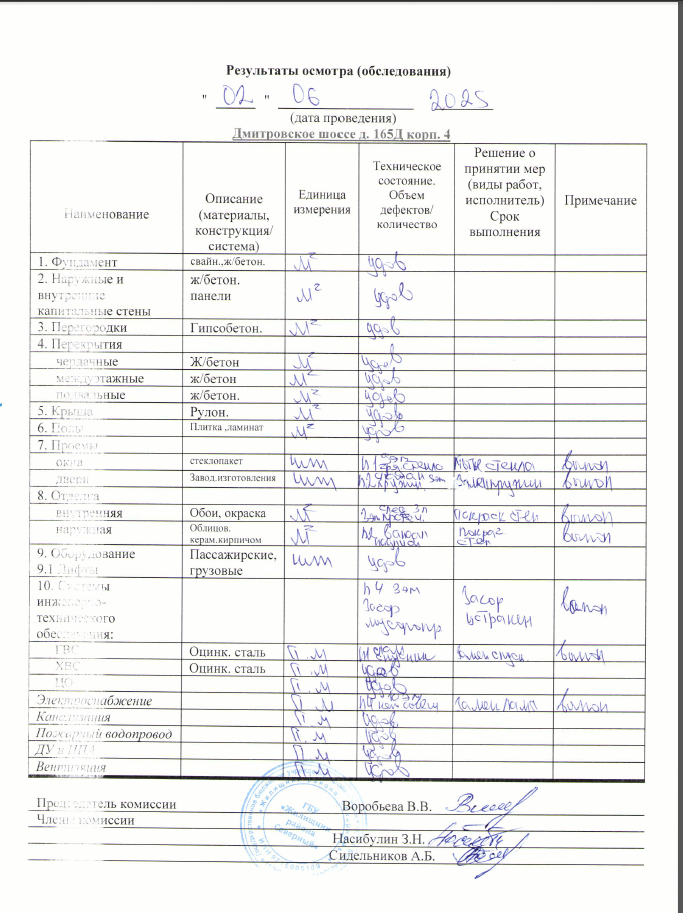 Результаты осмотра (обследования)
" 02 " 06 2025
(дата проведения)
Дмитровское шоссе д. 165Д корп. 4
Наименование Описание (материалы, конструкция/ система) Единица измерения Техническое состояние. Объем дефектов/ количество Решение о принятии мер (виды работ, исполнитель) Срок выполнения Примечание
1. Фундамент свайн.,ж/бетон. м² удов
2. Наружные и внутренние капитальные стены ж/бетон. панели м² удов
3. Перегородки Гипсобетон. м² удов
4. Перекрытия
чердачные Ж/бетон м² удов
междуэтажные ж/бетон м² удов
подвальные ж/бетон. м² удов
5. Крыша Рулон. м² удов
6. Полы Плитка ,ламинат м² удов
7. Проемы
окна стеклопакет шт стекло стекла выпол
двери Завод.изготовления шт выпол
8. Отделка
внутренняя Обои, окраска м² 3п стен выпол
наружная Облицов. керам.кирпичом м² стен выпол
9. Оборудование
9.1 Лифты Пассажирские, грузовые шт удов
10. Системы инженерно-технического обеспечения: п4 Засор Засор устранен выпол
ГВС Оцинк. сталь П.м выпол
ХВС Оцинк. сталь П.м удов
ЦО П.м удов
Электроснабжение П.м п4 замен ламп выпол
Канализация П.м удов
Пожарный водопровод П.м удов
ДУ и ППА П.м удов
Вентиляция П.м удов
Председатель комиссии Воробьева В.В.
Члены комиссии
Насибулин З.Н.
Сидельников А.Б.
ГБУ
«Жилищник
района
Северный»